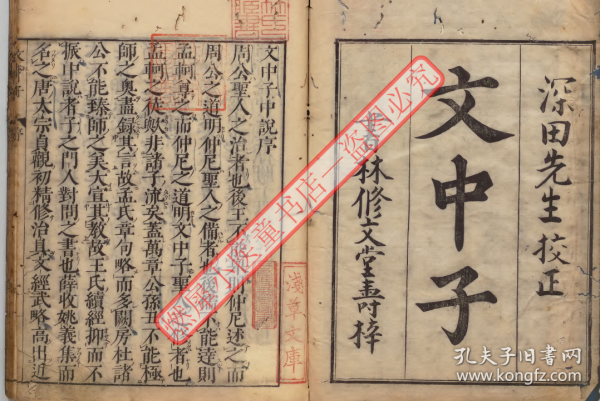 深田先生校正
文中子
書林修文堂壽梓
文中子中說序
周公聖人之治者也後王不能
仲尼述之而
周公之道明仲尼聖人之備者也後
不能達則
孟軻尊之而仲尼之道明文中子聖
者也
孟軻之徒歟非諸子流矣蓋萬章公孫丑不能極
師之奧盡錄其言故孟氏章句略而多闕房杜諸
公不能臻師之美大宣其教故王氏續經抑而不
振中說者子之門人對問之書也薛收姚義集而
名之唐太宗貞觀初精修治具文經武略高出近
淺草文庫
燃園小蛮童书店—盗图必究
孔夫子旧书网
www.kongfz.com